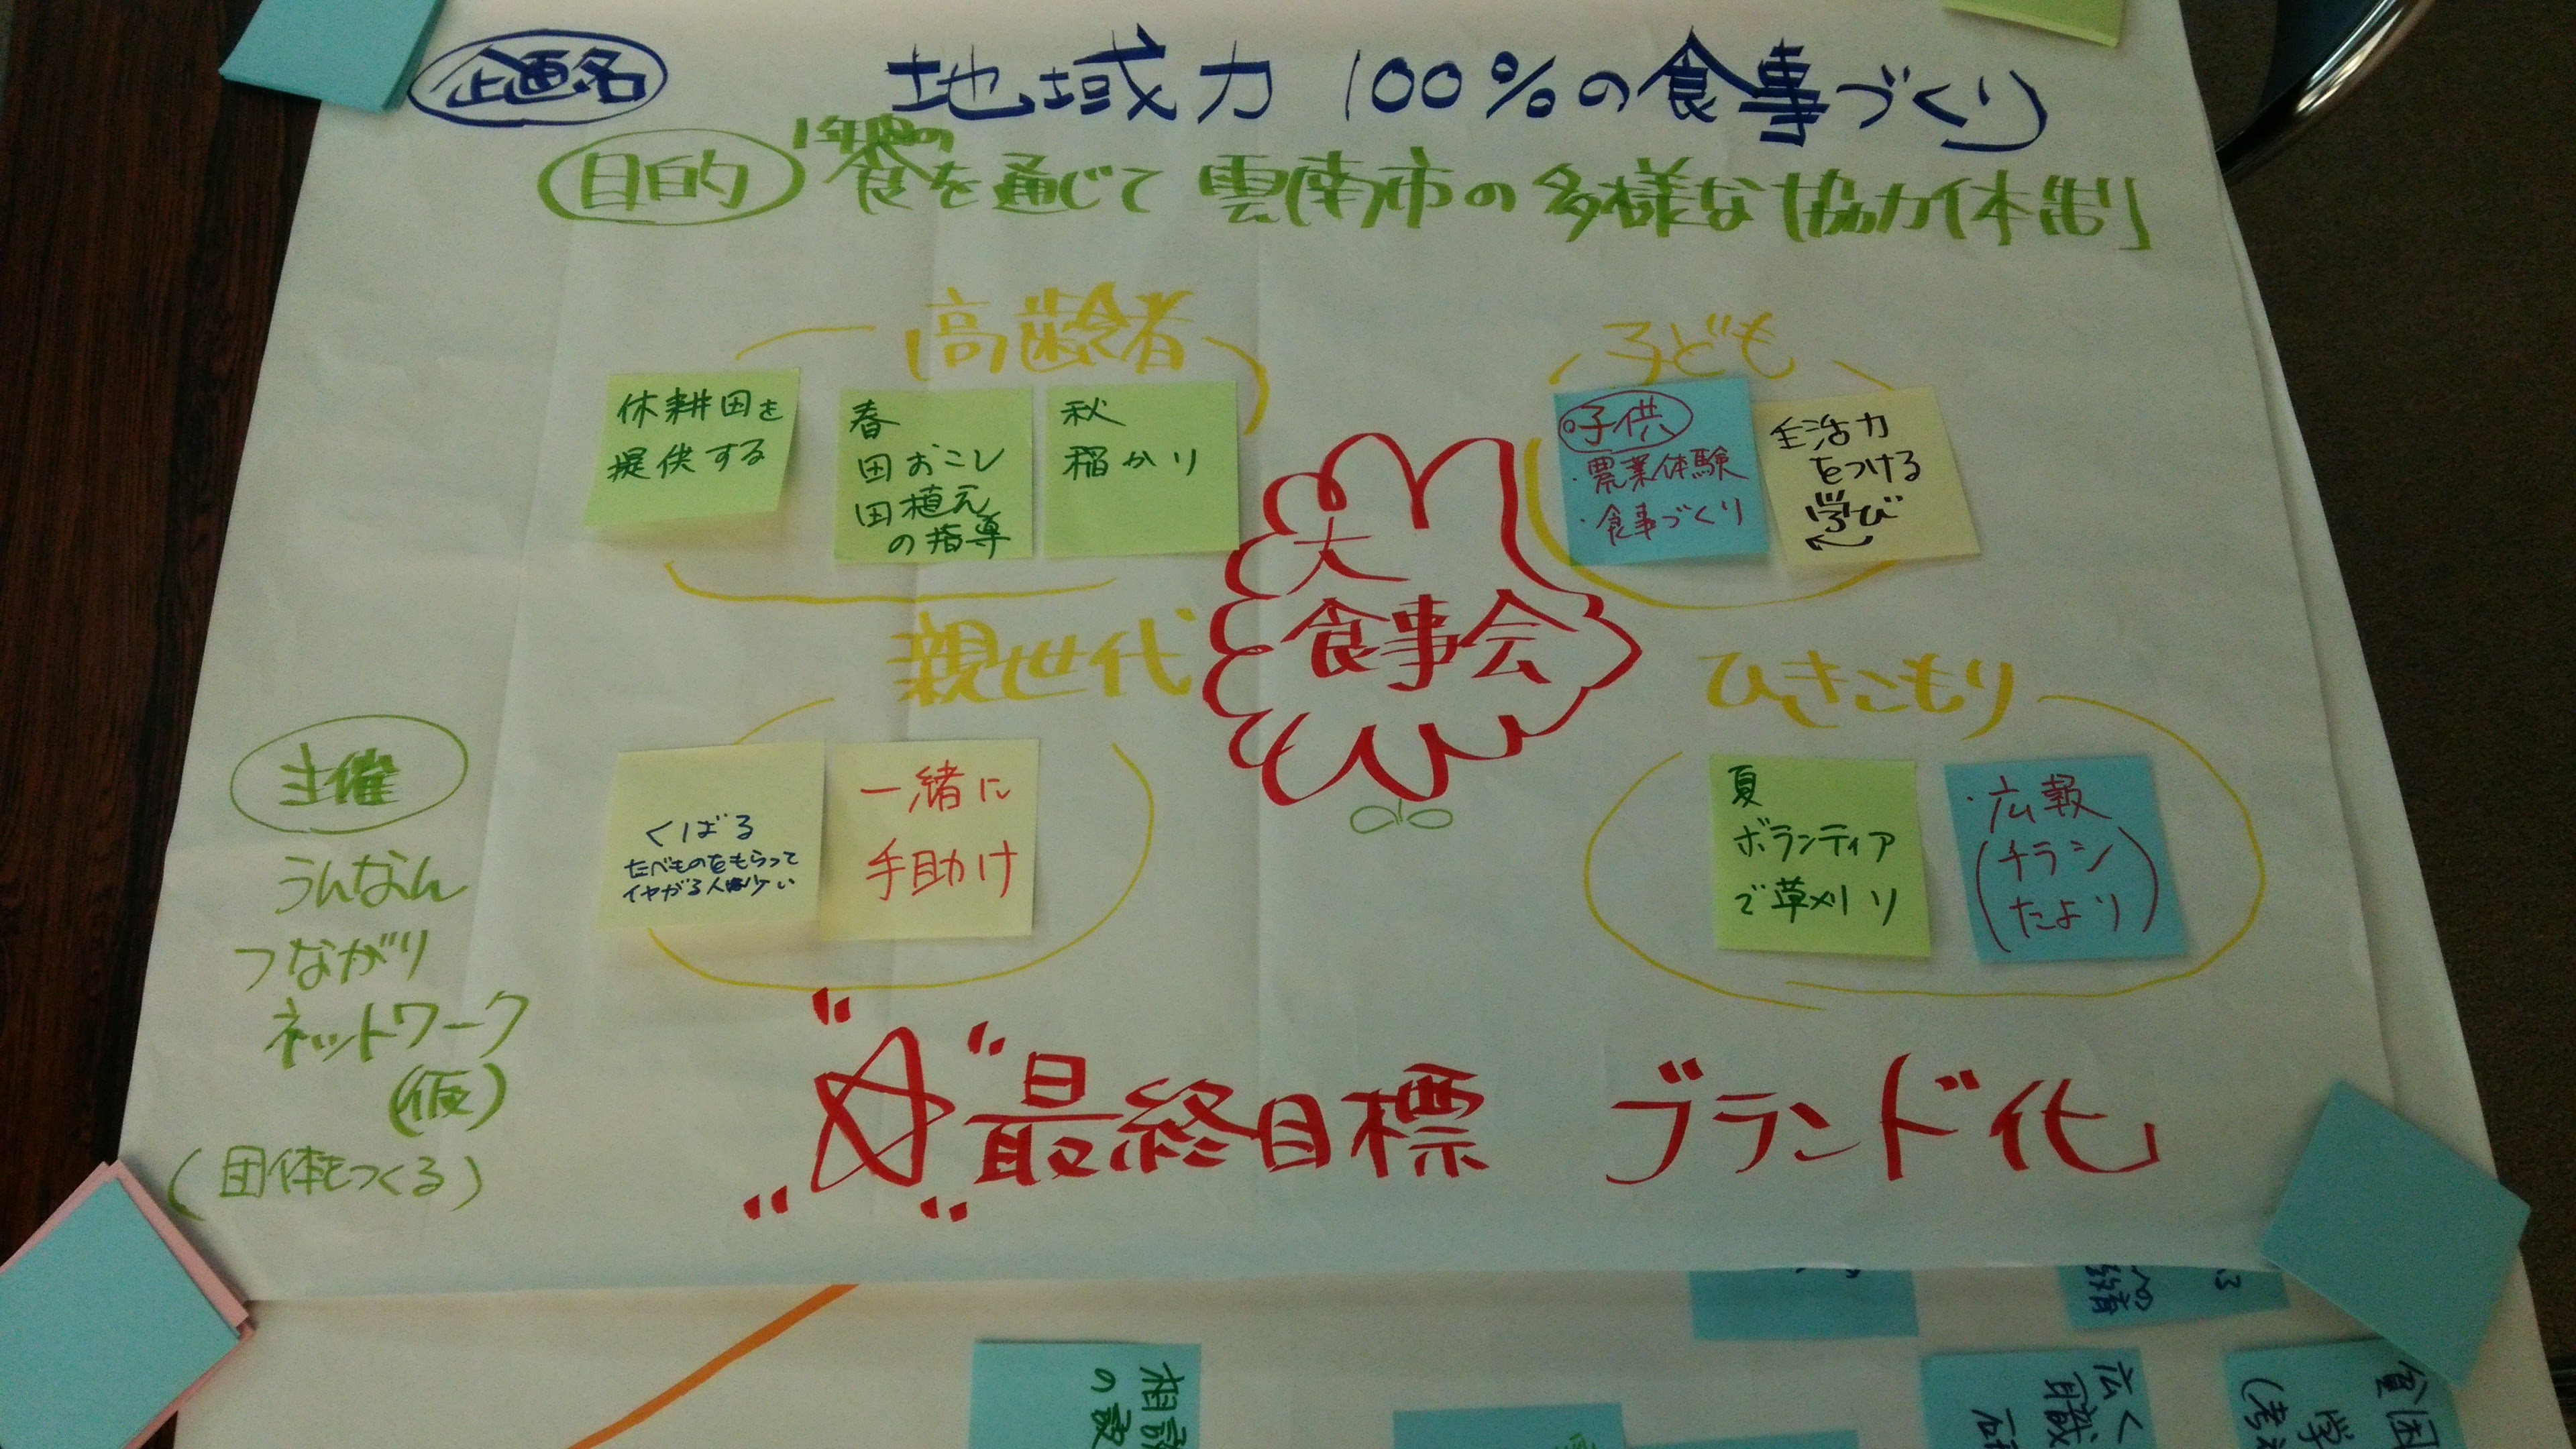 企画名
地域力 100%の食事づくり
目的
1年間の
食を通じて 雲南市の多様な協力体制
高齢者
休耕田を
提供する
春
田おこし
田植え
の指導
秋
稲かり
子ども
子供
・農業体験
・食事づくり
生活力
をつける
学び
大
食事会
親世代
くばる
たべものをもらって
イヤがる人は少い
一緒に
手助け
ひきこもり
夏
ボランティア
で草刈り
・広報
(チラシ
たより)
主催
うんなん
つながり
ネットワーク
(仮)
(団体をつくる)
最終目標 ブランド化
広く
貧困